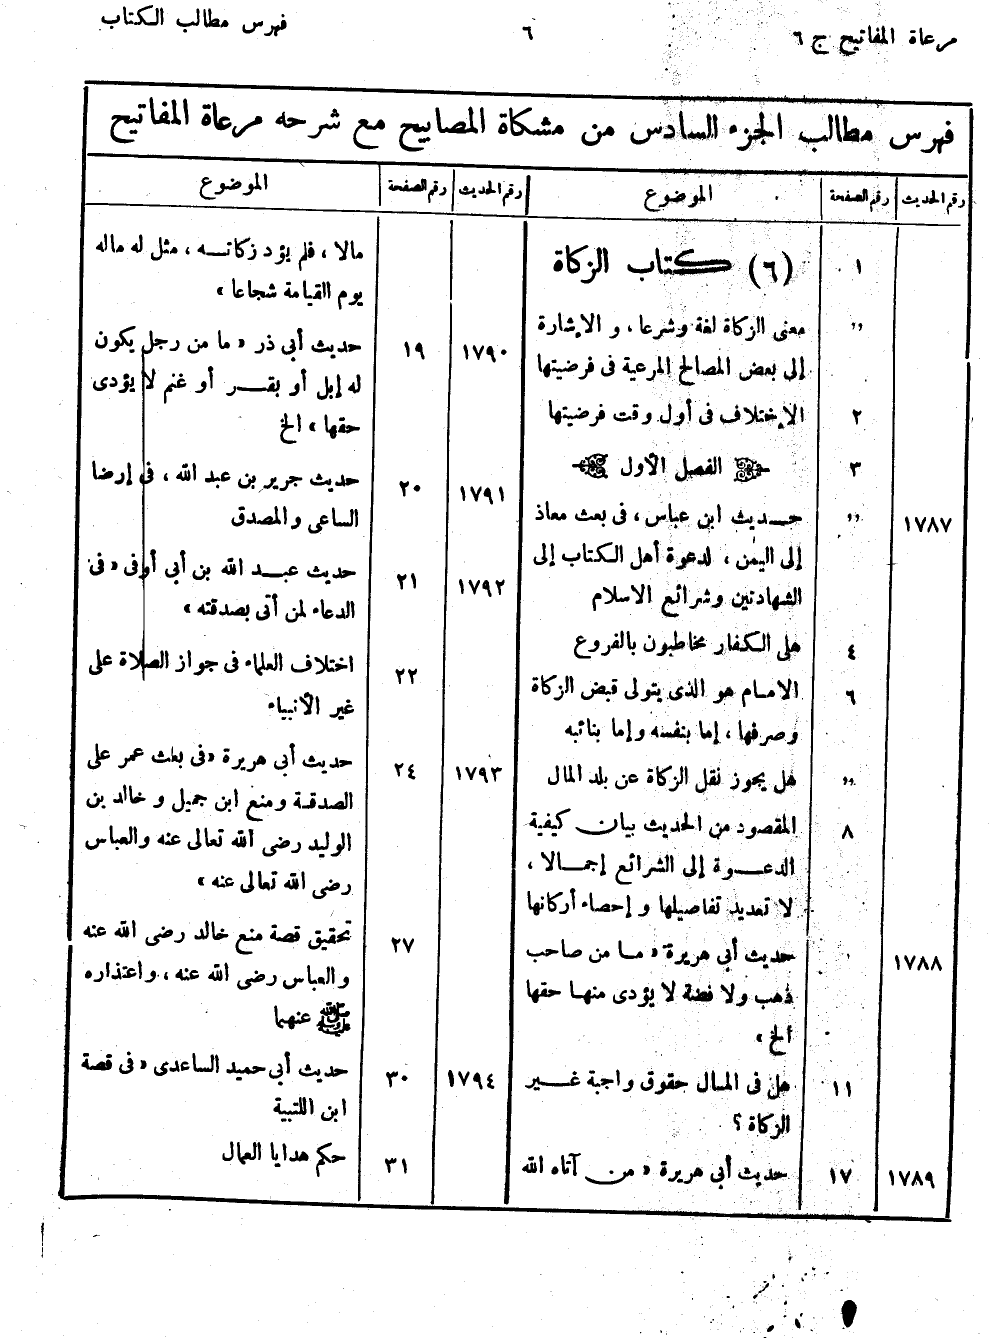 مرعاة المفاتيح ج ٦
٦
فهرس مطالب الكتاب
فهرس مطالب الجزء السادس من مشكاة المصابيح مع شرحه مرعاة المفاتيح
رقم الحديث رقم الصفحة الموضوع
١ (٦) كتاب الزكاة
,, معنى الزكاة لغة وشرعا ، و الإشارة
إلى بعض المصالح المرعية فى فرضيتها
٢ الإختلاف فى أول وقت فرضيتها
٣ الفصل الأول
١٧٨٧ ,, حديث ابن عباس ، فى بعث معاذ
إلى اليمن ، لدعوة أهل الكتاب إلى
الشهادتين وشرائع الاسلام
٤ هل الكفار مخاطبون بالفروع
٦ الامام هو الذى يتولى قبض الزكاة
وصرفها ، إما بنفسه وإما بنائبه
,, هل يجوز نقل الزكاة عن بلد المال
٨ المقصود من الحديث بيان كيفية
الدعوة إلى الشرائع إجمالا ،
لا تعديد تفاصيلها و إحصاء أركانها
١٧٨٨ حديث أبى هريرة « ما من صاحب
ذهب ولا فضة لا يؤدى منها حقها
ألخ »
١١ هل فى المال حقوق واجبة غير
الزكاة ؟
١٧٨٩ ١٧ حديث أبى هريرة « من آتاه الله
رقم الحديث رقم الصفحة الموضوع
مالا ، فلم يؤد زكاته ، مثل له ماله
يوم القيامة شجاعا »
١٧٩٠ ١٩ حديث أبى ذر « ما من رجل يكون
له إبل أو بقر أو غنم لا يؤدى
حقها » الخ
١٧٩١ ٢٠ حديث جرير بن عبد الله ، فى إرضا
الساعى والمصدق
١٧٩٢ ٢١ حديث عبد الله بن أبى أوفى « فى
الدعاء لمن أتى بصدقته »
٢٢ اختلاف العلماء فى جواز الصلاة على
غير الأنبياء
١٧٩٣ ٢٤ حديث أبى هريرة «فى بعث عمر على
الصدقة ومنع ابن جميل و خالد بن
الوليد رضى الله تعالى عنه والعباس
رضى الله تعالى عنه »
٢٧ تحقيق قصة منع خالد رضى الله عنه
والعباس رضى الله عنه ، واعتذاره
ﷺ عنهما
١٧٩٤ ٣٠ حديث أبى حميد الساعدى « فى قصة
ابن اللتبية
٣١ حكم هدايا العمال